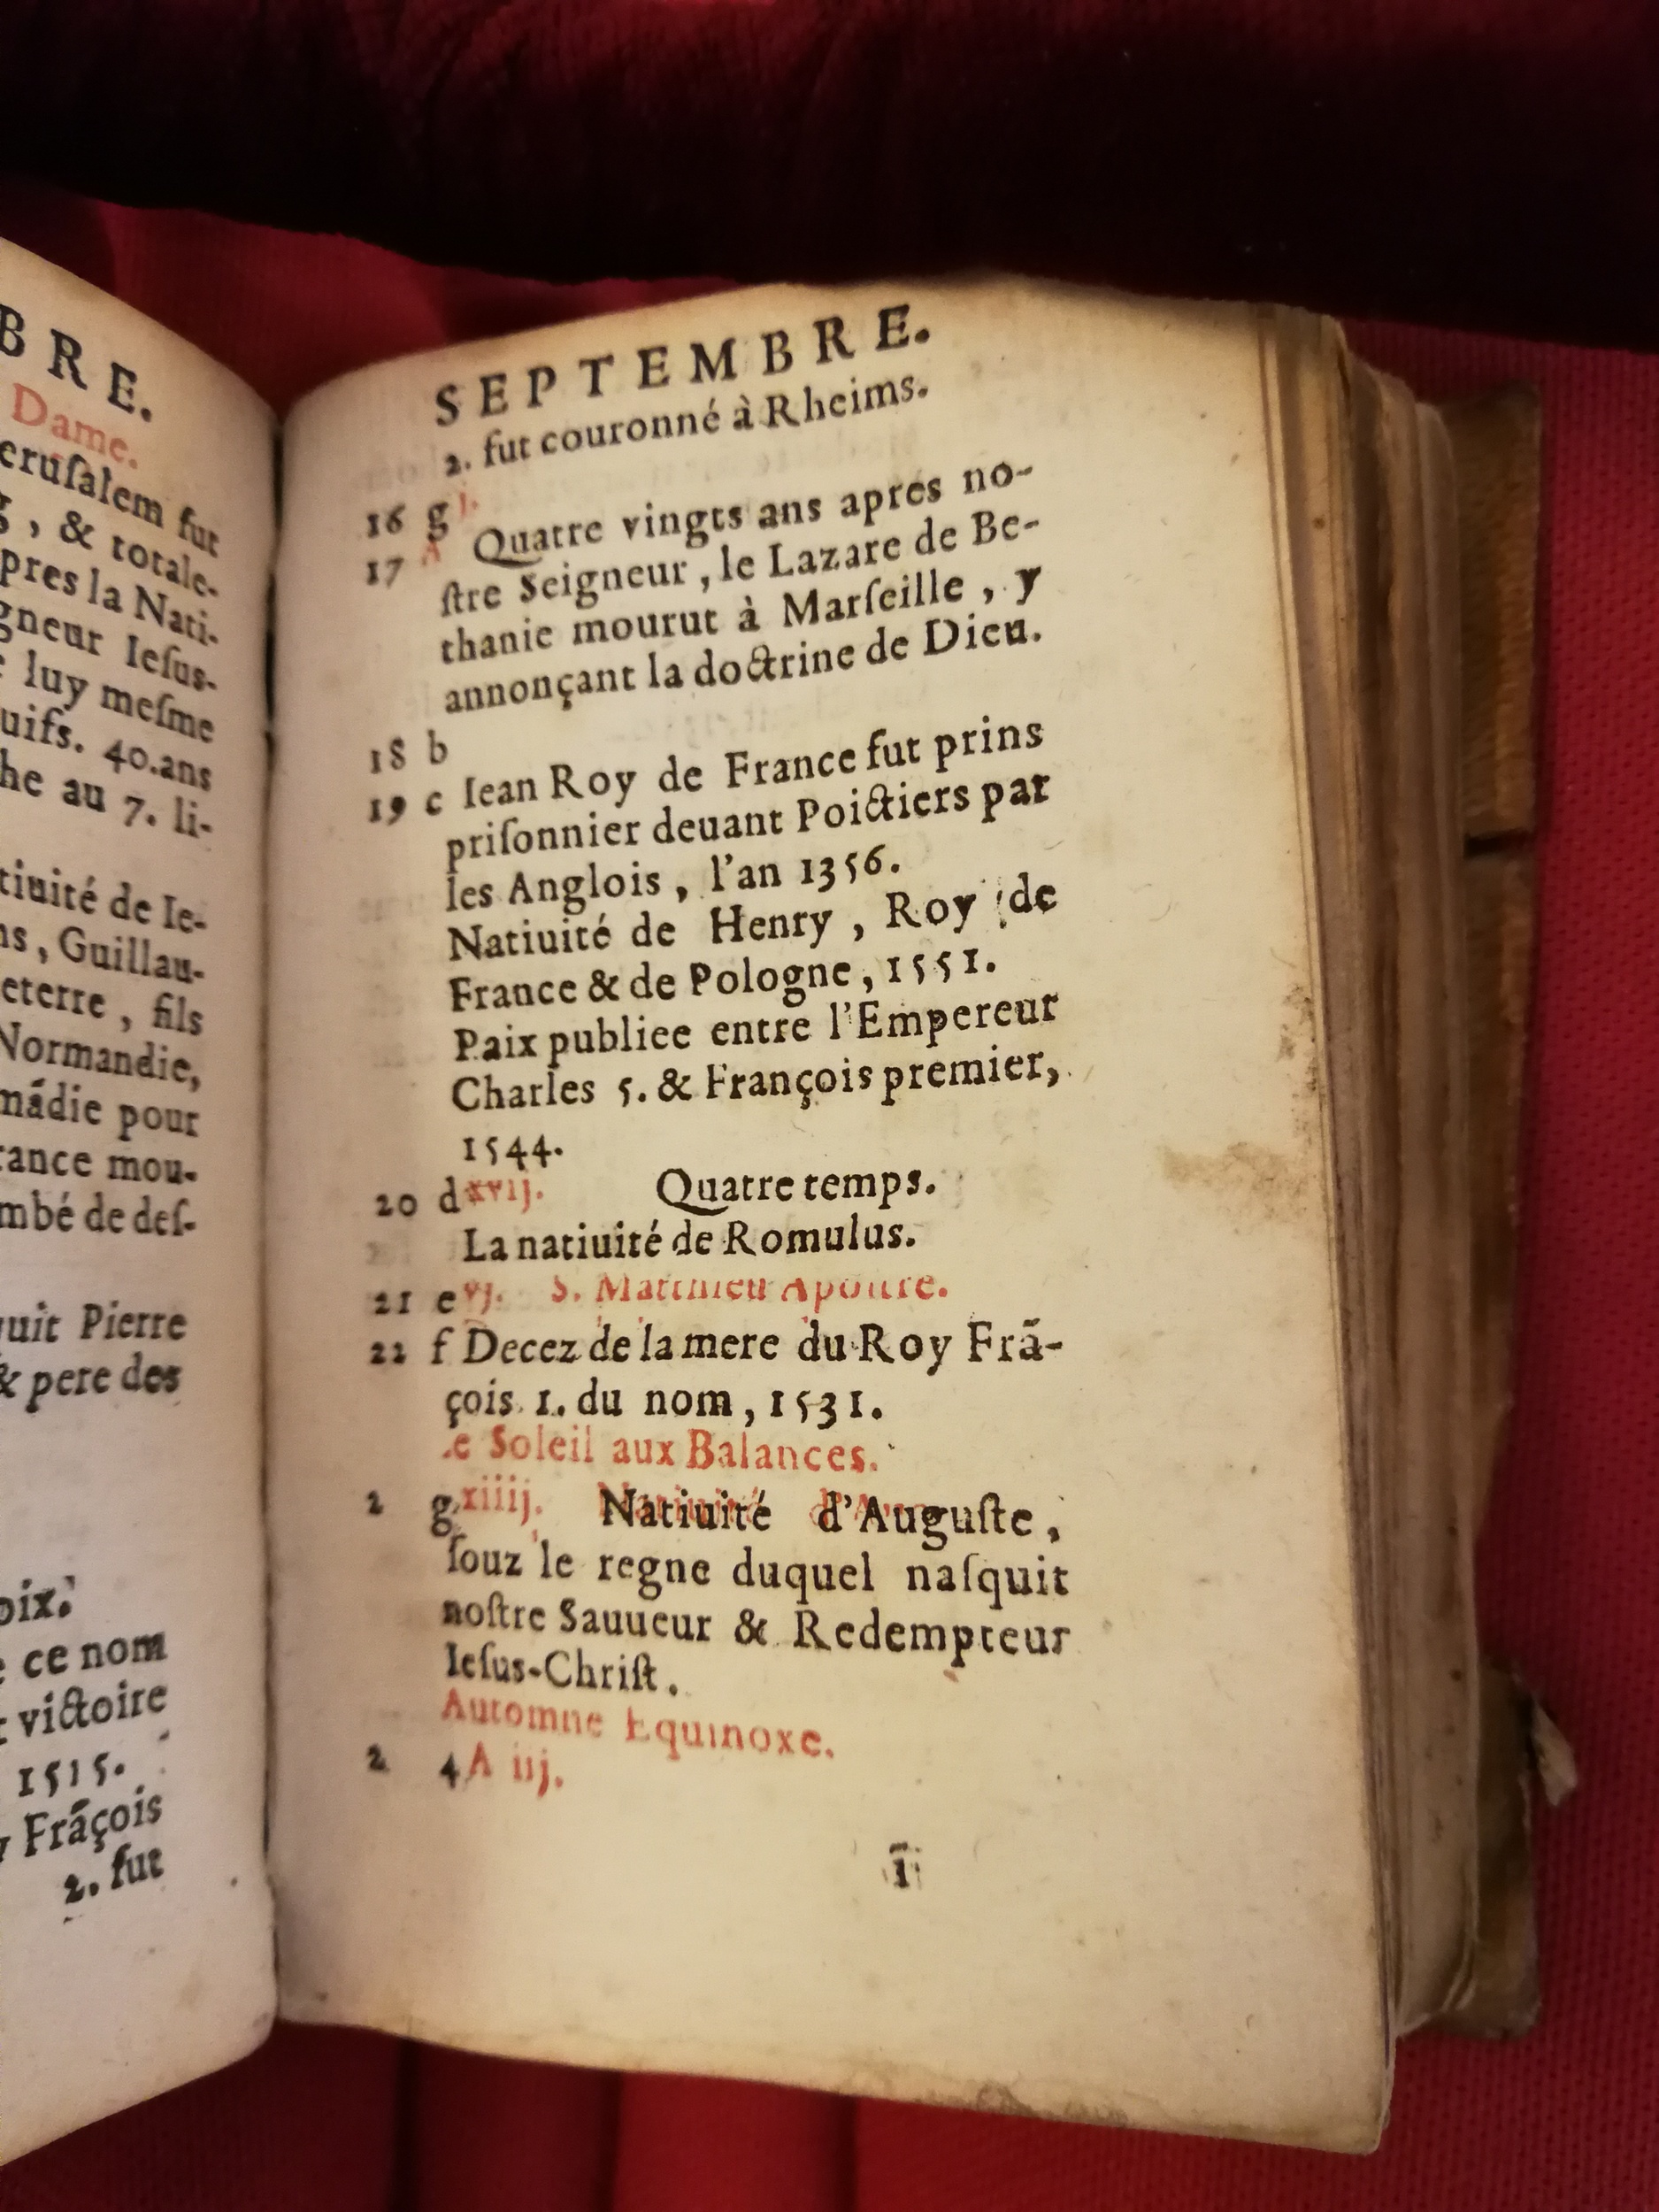 BRE.
Dame.
eruſalem fut
g, & totale-
pres la Nati-
gneur Ieſus-
luy meſme
uifs. 40.ans
he au 7. li-
tiuité de Ie-
ns, Guillau-
eterre, fils
Normandie,
mãdie pour
rance mou-
mbé de deſ-
quit Pierre
& pere des
oix.
ce nom
victoire
1515.
Frãçois
2. fut
SEPTEMBRE.
2. fut couronné à Rheims.
16 g j.
17 A Quatre vingts ans apres no-
ſtre Seigneur, le Lazare de Be-
thanie mourut à Marſeille, y
annonçant la doctrine de Dieu.
18 b
19 c Iean Roy de France fut prins
priſonnier deuant Poictiers par
les Anglois, l'an 1356.
Natiuité de Henry, Roy de
France & de Pologne, 1551.
Paix publiee entre l'Empereur
Charles 5. & François premier,
1544.
20 d xvij. Quatre temps.
La natiuité de Romulus.
21 e vj. S. Matthieu Apoſtre.
22 f Decez de la mere du Roy Frã-
çois 1. du nom, 1531.
e Soleil aux Balances.
2 g xiiij. Natiuité d'Auguſte,
ſouz le regne duquel naſquit
noſtre Sauueur & Redempteur
Ieſus-Chriſt.
Automne Equinoxe.
2 4 A iij.